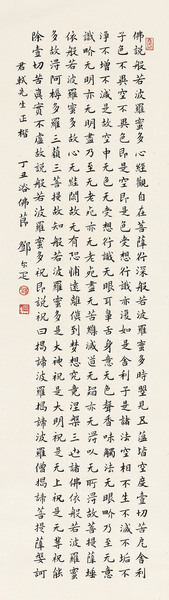 佛說般若波羅蜜多心經觀自在菩薩行深般若波羅蜜多時瞾見五蘊皆空度壹切苦厄舍利
子色不異空不異色即是空即是色受想行識亦復如是舍利子是諸法空相不生不滅不垢不
淨不增不減是故空中无色无受想行識无眼耳鼻舌身意无色聲香味觸法无眼界乃至无意
識界无明亦无明盡乃至无老死亦无老死盡无苦集滅道无智亦无得以无所得故菩提薩埵
依般若波羅蜜多故心无罣礙故无有恐怖遠離顛倒夢想究竟涅槃三世諸佛依般若波羅蜜
多故得阿耨多羅三藐三菩提故知般若波羅蜜多是大神祝是大明祝是无上祝是无等祝能
除壹切苦真實不虛故說般若波羅蜜多祝即說祝曰揭諦波羅揭諦波羅僧揭諦菩提薩婆訶
君軾先生正楷
丁丑浴佛節 鄧尔疋